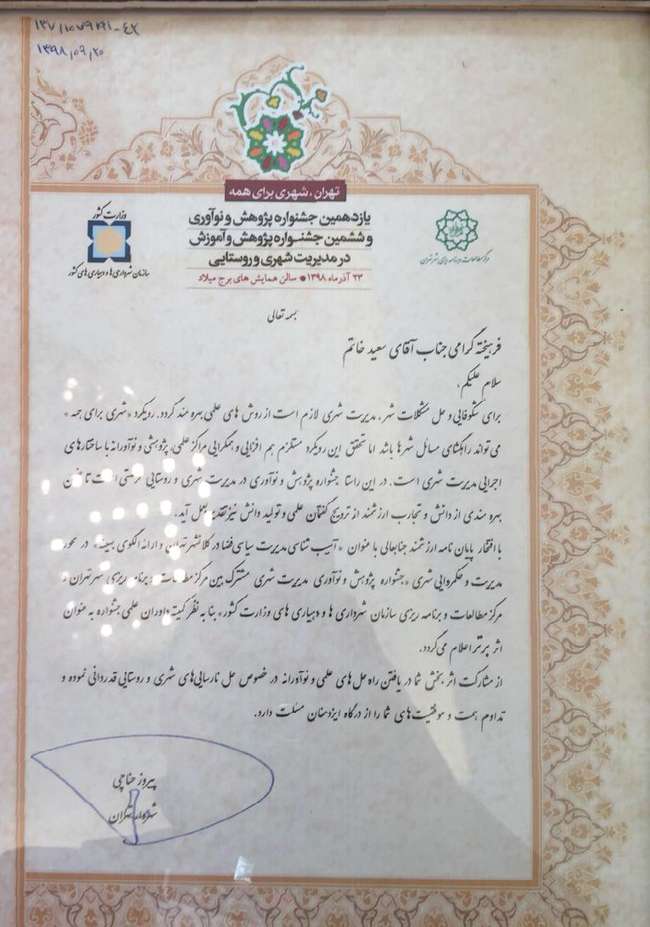 ۱۳۹۸/۰۹/۲۰
تهران، شهری برای همه
یازدهمین جشنواره پژوهش و نوآوری
و ششمین جشنواره پژوهش و آموزش
در مدیریت شهری و روستایی
۲۳ آذر ماه ۱۳۹۸ • سالن همایش های برج میلاد
وزارت کشور
سازمان شهرداری ها و دهیاری های کشور
مرکز مطالعات و برنامه ریزی شهر تهران
بسمه تعالی
فرهیخته گرامی جناب آقای سعید خاتم
سلام علیکم،
برای شکوفایی و حل مشکلات شهر، مدیریت شهری لازم است از روش های علمی بهره مند گردد. رویکرد «شهری برای همه»
می تواند راهگشای مسائل شهرها باشد اما تحقق این رویکرد مستلزم هم افزایی و همگرایی مراکز علمی، پژوهشی و نوآورانه با ساختارهای
اجرایی مدیریت شهری است. در این راستا جشنواره پژوهش و نوآوری در مدیریت شهری و روستایی فرصتی است تا ضمن
بهره مندی از دانش و تجارب ارزشمند از ترویج گفتمان علمی و تولید دانش نیز تقدیر بعمل آید.
با افتخار پایان نامه ارزشمند جنابعالی با عنوان «آسیب شناسی مدیریت سیاسی فضا در کلانشهر تهران و ارائه الگوی بهینه» در محور
مدیریت و حکمروایی شهری «جشنواره پژوهش و نوآوری مدیریت شهری مشترک بین مرکز مطالعات و برنامه ریزی شهر تهران و
مرکز مطالعات و برنامه ریزی سازمان شهرداری ها و دهیاری های وزارت کشور» بنا به نظر کمیته داوران علمی جشنواره به عنوان
اثر برتر اعلام می گردد.
از مشارکت اثر بخش شما در یافتن راه حل های علمی و نوآورانه در خصوص حل نارسایی های شهری و روستایی قدردانی نموده و
تداوم همت و موفقیت های شما را از درگاه ایزد منان مسئلت دارد.
پیروز حناچی
شهردار تهران